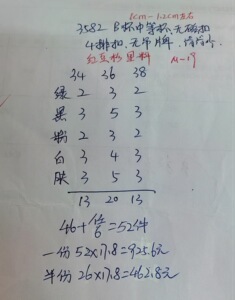 1cm-1.2cm左右
3582 B杯中等杯,无痕扣
4排扣,无吊牌,
红豆杉里料 M-19
34 36 38
绿 2 3 2
黑 3 5 3
2 3 2
白 3 4 3
肤 3 5 3
13 20 13
46+6=52件
一份 52×17.8=925.6元
半份 26×17.8=462.8元